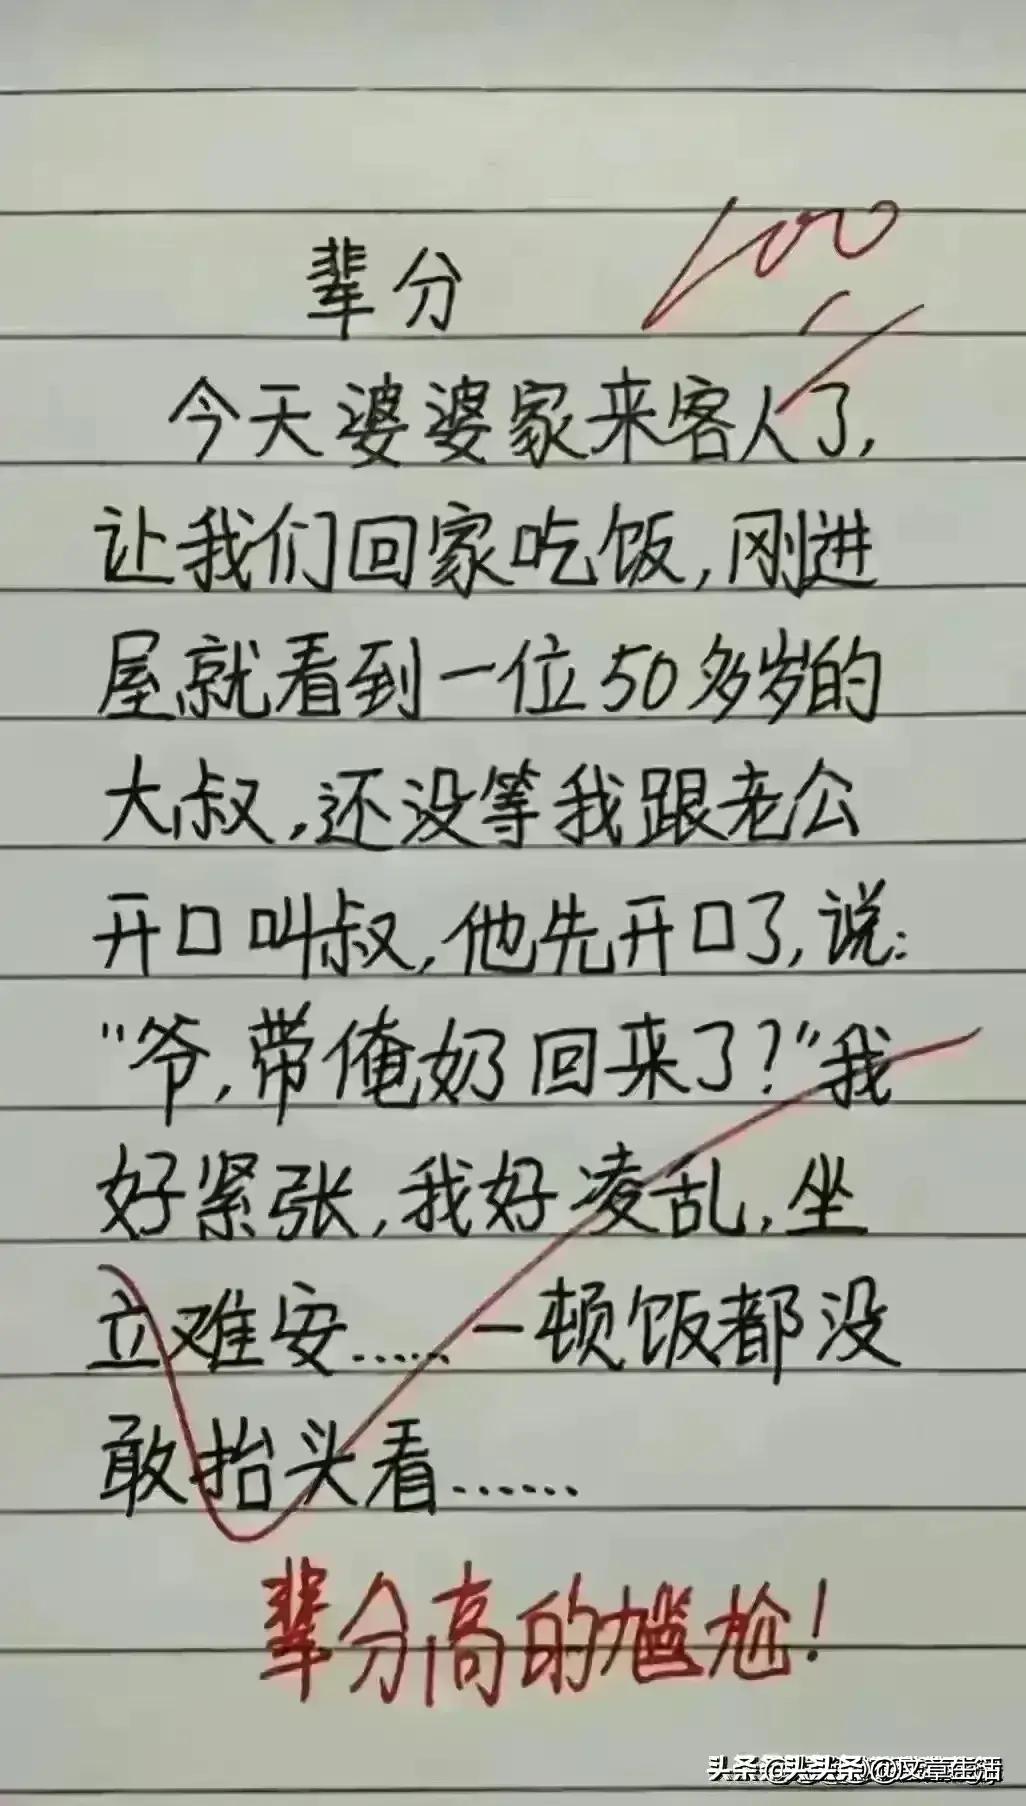 辈分
100
今天婆婆家来客人了,
让我们回家吃饭,刚进
屋就看到一位50多岁的
大叔,还没等我跟老公
开口叫叔,他先开口了,说:
"爷,带俺奶回来了?"我
好紧张,我好凌乱,坐
立难安……一顿饭都没
敢抬头看……
辈分高的尴尬!